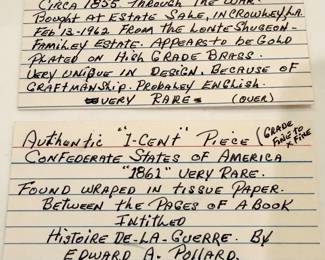 CIRCA 1855 THROUGH THE WAR.
BOUGHT AT ESTATE SALE, IN CROWLEY, LA.
FEB 13-1962 FROM THE LONTE SHUGEON-
FAMILEY ESTATE. APPEARS TO BE GOLD
PLATED ON HIGH GRADE BRASS.
VERY UNIQUE IN DESIGN. BECAUSE OF
CRAFTMANSHIP. PROBALEY ENGLISH.
VERY RARE (OVER)
AUTHENTIC "1-CENT" PIECE (GRADE FINE TO X FINE
CONFEDERATE STATES OF AMERICA
"1861" VERY RARE.
FOUND WRAPED IN TISSUE PAPER.
BETWEEN THE PAGES OF A BOOK
INTITLED
HISTOIRE DE-LA-GUERRE. BY
EDWARD A. POLLARD.